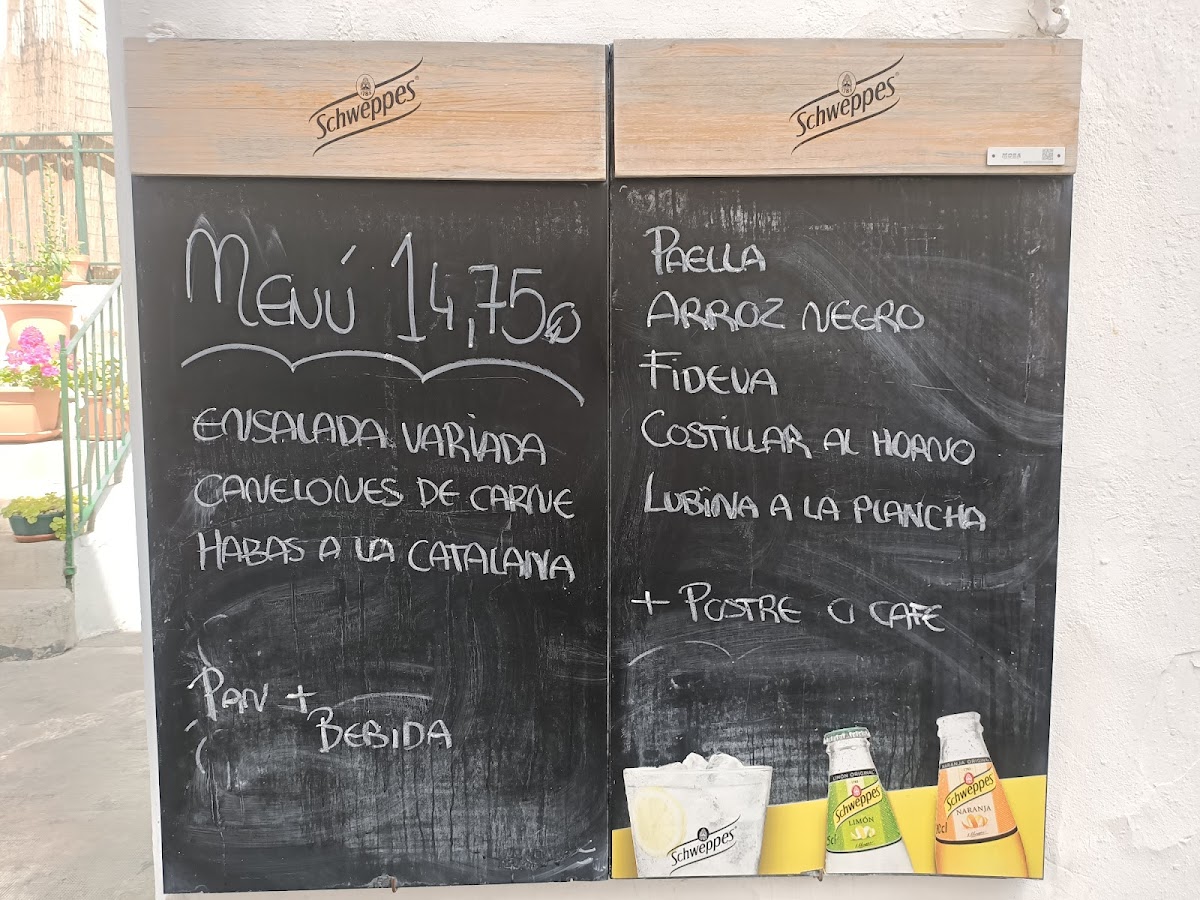 Schweppes
Menú 14,75€
ENSALADA VARIADA
CANELONES DE CARNE
HABAS A LA CATALANA
PAN +
BEBIDA
Schweppes
PAELLA
ARROZ NEGRO
FIDEUA
COSTILLAR AL HORNO
LUBINA A LA PLANCHA
+ POSTRE O CAFE
Schweppes
LIMÓN ORIGINAL
Schweppes
LIMÓN
NARANJA ORIGINAL
Schweppes
NARANJA